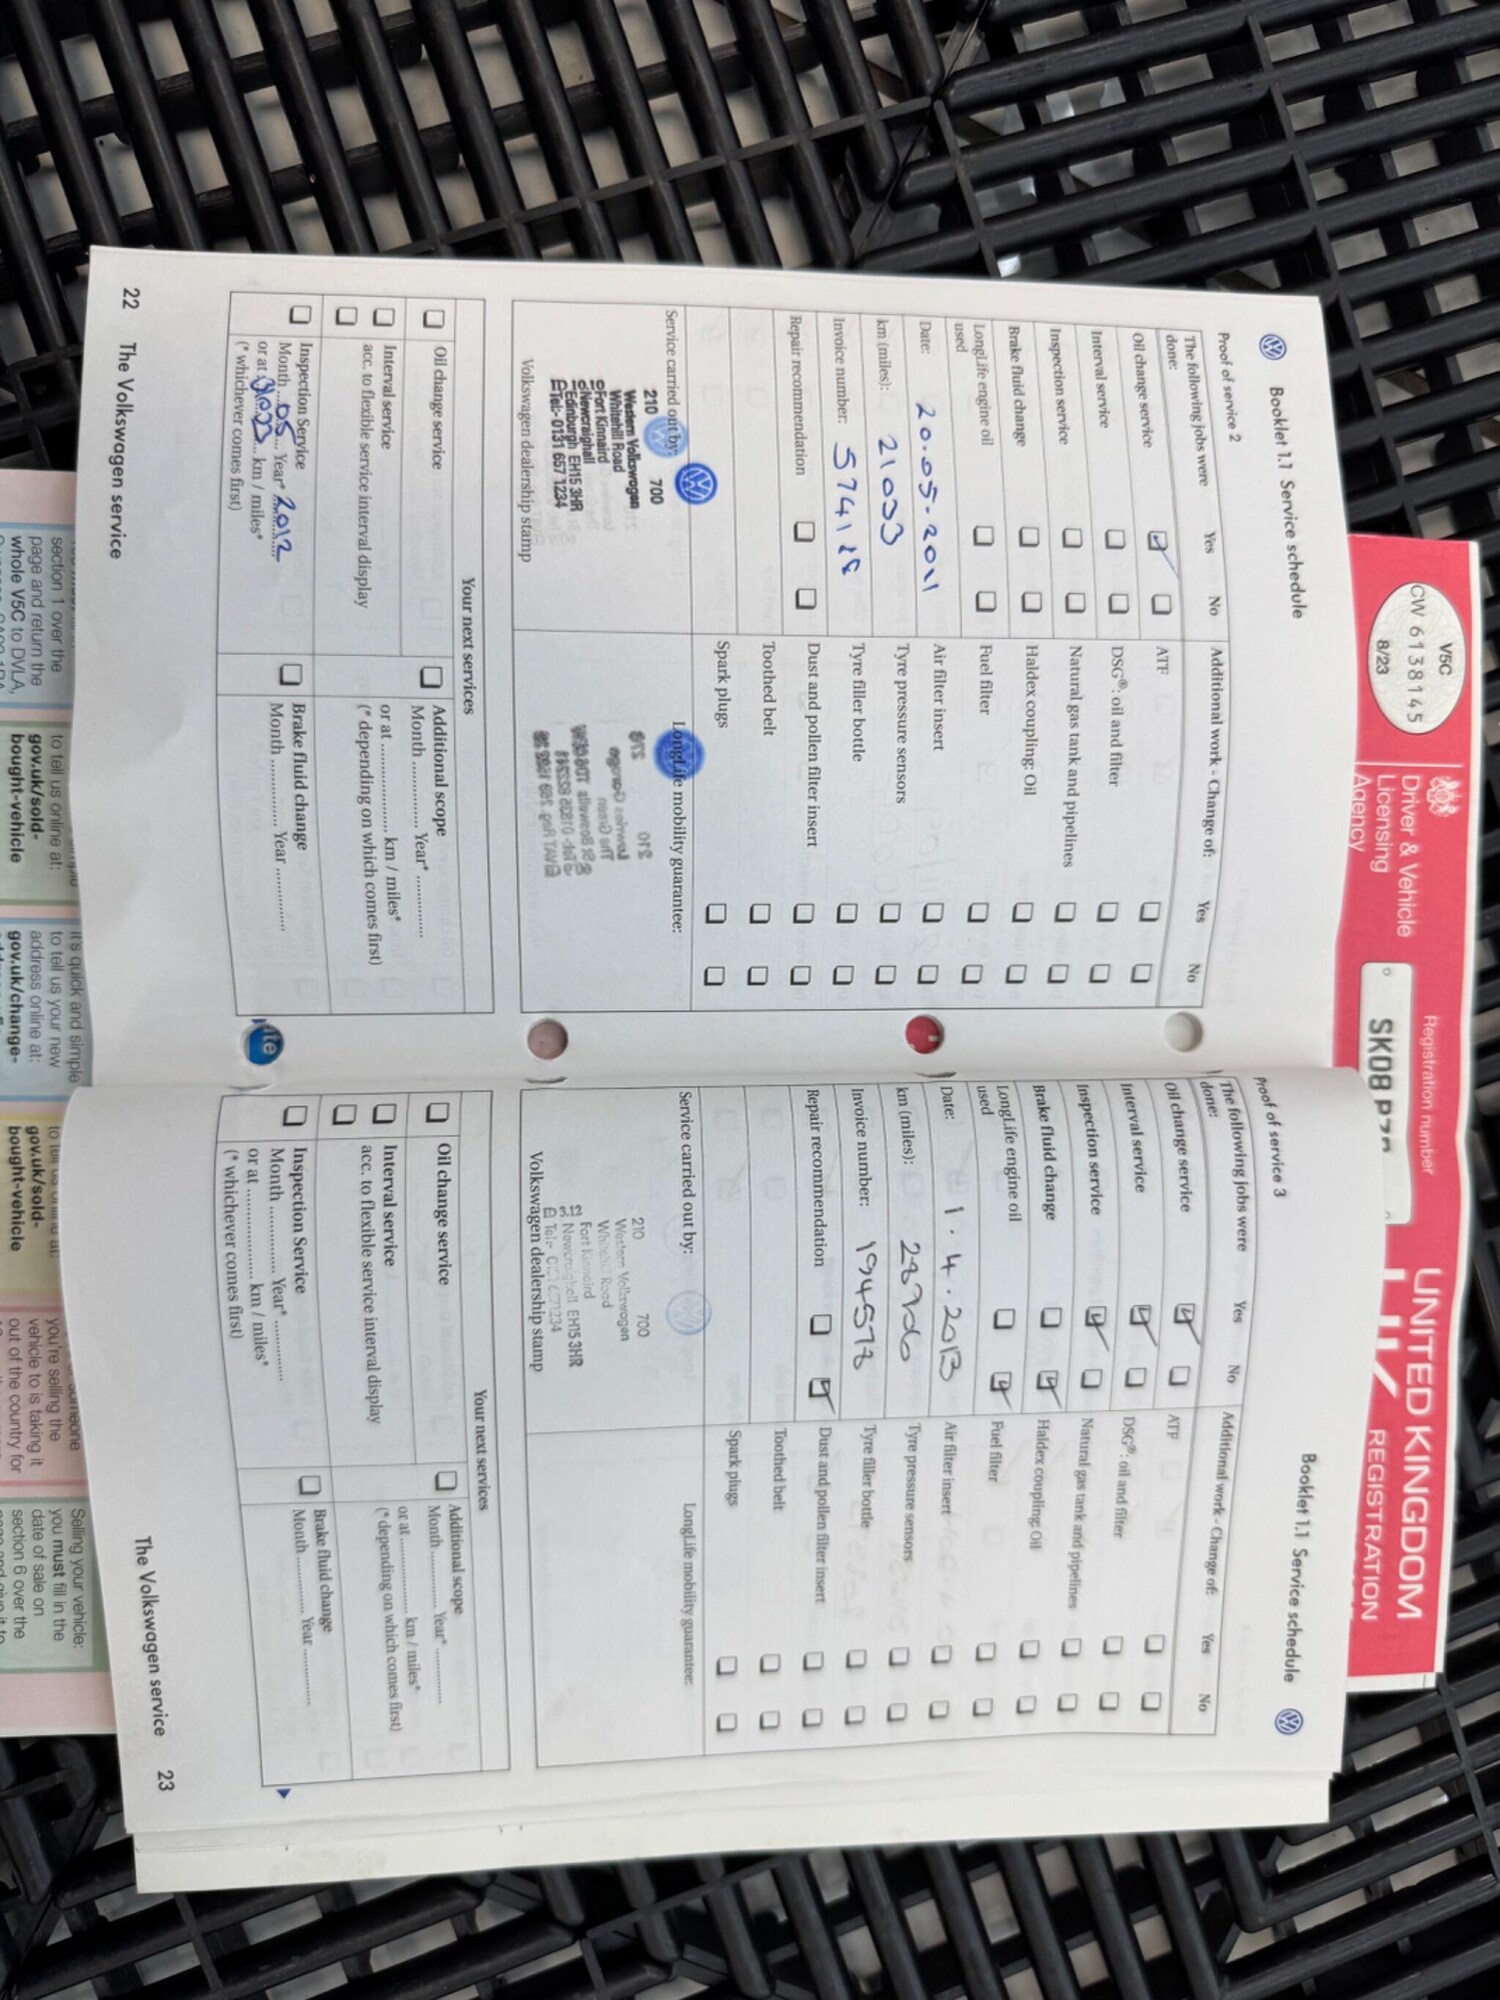 Booklet 1.1 Service schedule
Proof of service 2
The following jobs were done: Yes No
Oil change service
Interval service
Inspection service
Brake fluid change
LongLife engine oil used
Date: 20.05.2011
km (miles): 21033
Invoice number:
Repair recommendation
Additional work - Change of: Yes No
ATF
DSG®: oil and filter
Natural gas tank and pipelines
Haldex coupling: Oil
Fuel filter
Air filter insert
Tyre pressure sensors
Tyre filler bottle
Dust and pollen filter insert
Toothed belt
Spark plugs
Service carried out by:
210 700
Western Volkswagen
Whitehill Road
Fort Kinnaird
Newcraighall
Edinburgh EH15 3HR
Tel:- 0131 657 1234
Volkswagen dealership stamp
LongLife mobility guarantee:
Your next services
Oil change service
Interval service
acc. to flexible service interval display
Inspection Service
Month 05 Year* 2012
or at 31033 km / miles*
(* whichever comes first)
Additional scope
Month Year*
or at km / miles*
(* depending on which comes first)
Brake fluid change
Month Year
22 The Volkswagen service
Booklet 1.1 Service schedule
Proof of service 3
The following jobs were done: Yes No
Oil change service
Interval service
Inspection service
Brake fluid change
LongLife engine oil used
Date: 1.4.2013
km (miles):
Invoice number: 194578
Repair recommendation
Additional work - Change of: Yes No
ATF
DSG®: oil and filter
Natural gas tank and pipelines
Haldex coupling: Oil
Fuel filter
Air filter insert
Tyre pressure sensors
Tyre filler bottle
Dust and pollen filter insert
Toothed belt
Spark plugs
Service carried out by:
210 700
Western Volkswagen
Whitehill Road
Fort Kinnaird
Newcraighall EH15 3HR
Volkswagen dealership stamp
LongLife mobility guarantee:
Your next services
Oil change service
Interval service
acc. to flexible service interval display
Inspection Service
Month Year*
or at km / miles*
(* whichever comes first)
Additional scope
Month Year*
or at km / miles*
(* depending on which comes first)
Brake fluid change
Month Year
The Volkswagen service 23
V5C
CW 6138145
8/23
Driver & Vehicle
Licensing
Agency
Registration number
SK08
UNITED KINGDOM
REGISTRATION
section 1 over the
page and return the
whole V5C to DVLA,
to tell us online at:
gov.uk/sold-
bought-vehicle
it's quick and simple
to tell us your new
address online at:
gov.uk/change-
gov.uk/sold-
bought-vehicle
someone
you're selling the
vehicle to is taking it
out of the country for
Selling your vehicle:
you must fill in the
date of sale on
section 6 over the